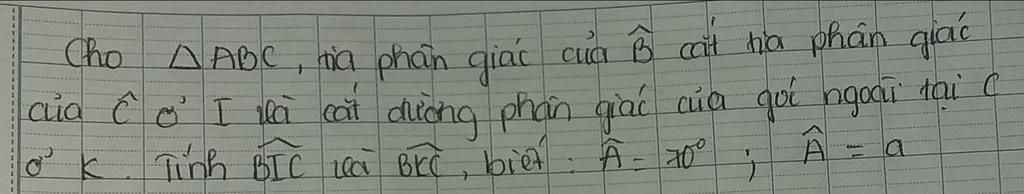 Cho △ABC, tia phân giác của B̂ cắt tia phân giác
của Ĉ ở I và cắt đường phân giác của góc ngoài tại C
ở K. Tính B̂IC và B̂KC, biết: Â = 70° ; Â = a